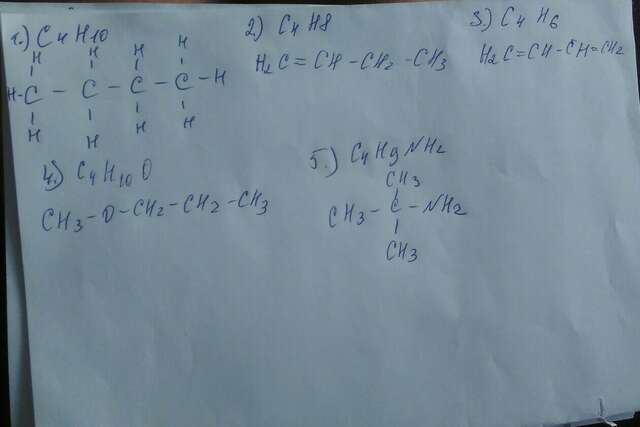 1.) C4H10
H H H H
H-C - C - C - C - H
H H H H
2) C4H8
H2C = CH - CH2 - CH3
3) C4H6
H2C=CH-CH=CH2
4) C4H10O
CH3-O-CH2-CH2-CH3
5.) C4H9NH2
CH3
CH3- C - NH2
CH3